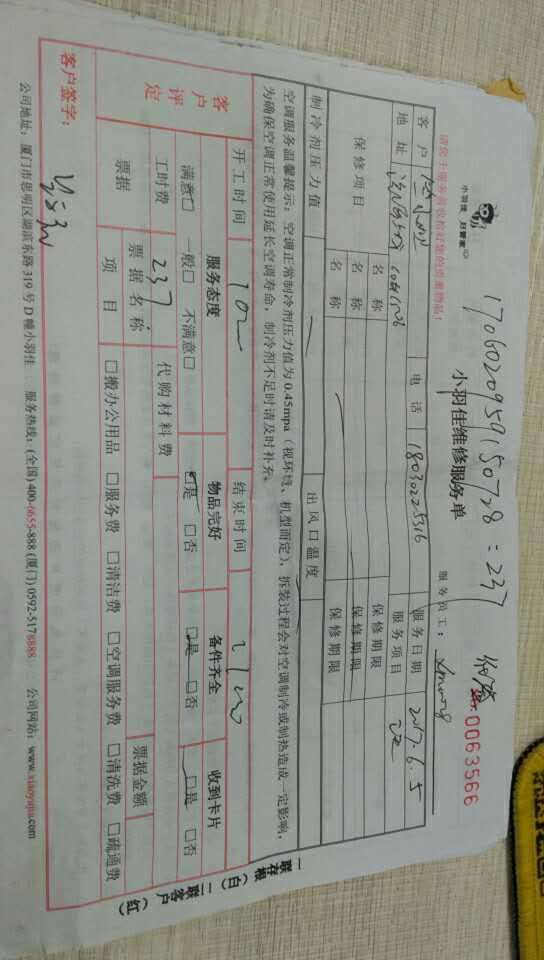 1706020959150728 = 237
请您于服务前收检好您的贵重物品！
小羽佳 好管家
小羽佳维修服务单
0063566
服务员工：
客户
电话 18030225316
服务日期 2017.6.5
地址
服务项目
保修项目 名称 保修期限
名称 保修期限
名称 保修期限
制冷剂压力值 出风口温度
空调服务温馨提示：空调正常制冷剂压力值为0.45mpa（视环境、机型而定），拆装过程会对空调制冷或制热造成一定影响，
为确保空调正常使用延长空调寿命，制冷剂不足时请及时补充。
开工时间 结束时间
客户评定 服务态度 物品完好 备件齐全 收到卡片
满意□ 一般□ 不满意□ □是 □否 □是 □否 □是 □否
工时费 237 代购材料费
票据 票据名称 票据金额
项目 □搬办公用品 □服务费 □清洁费 □空调服务费 □清洗费 □疏通费
客户签字：
一联存根（白） 二联客户（红）
公司地址：厦门市思明区湖滨东路319号D幢小羽佳 服务热线：(全国)400-6655-888 (厦门)0592-5178888 公司网站：www.xiaoyujia.com